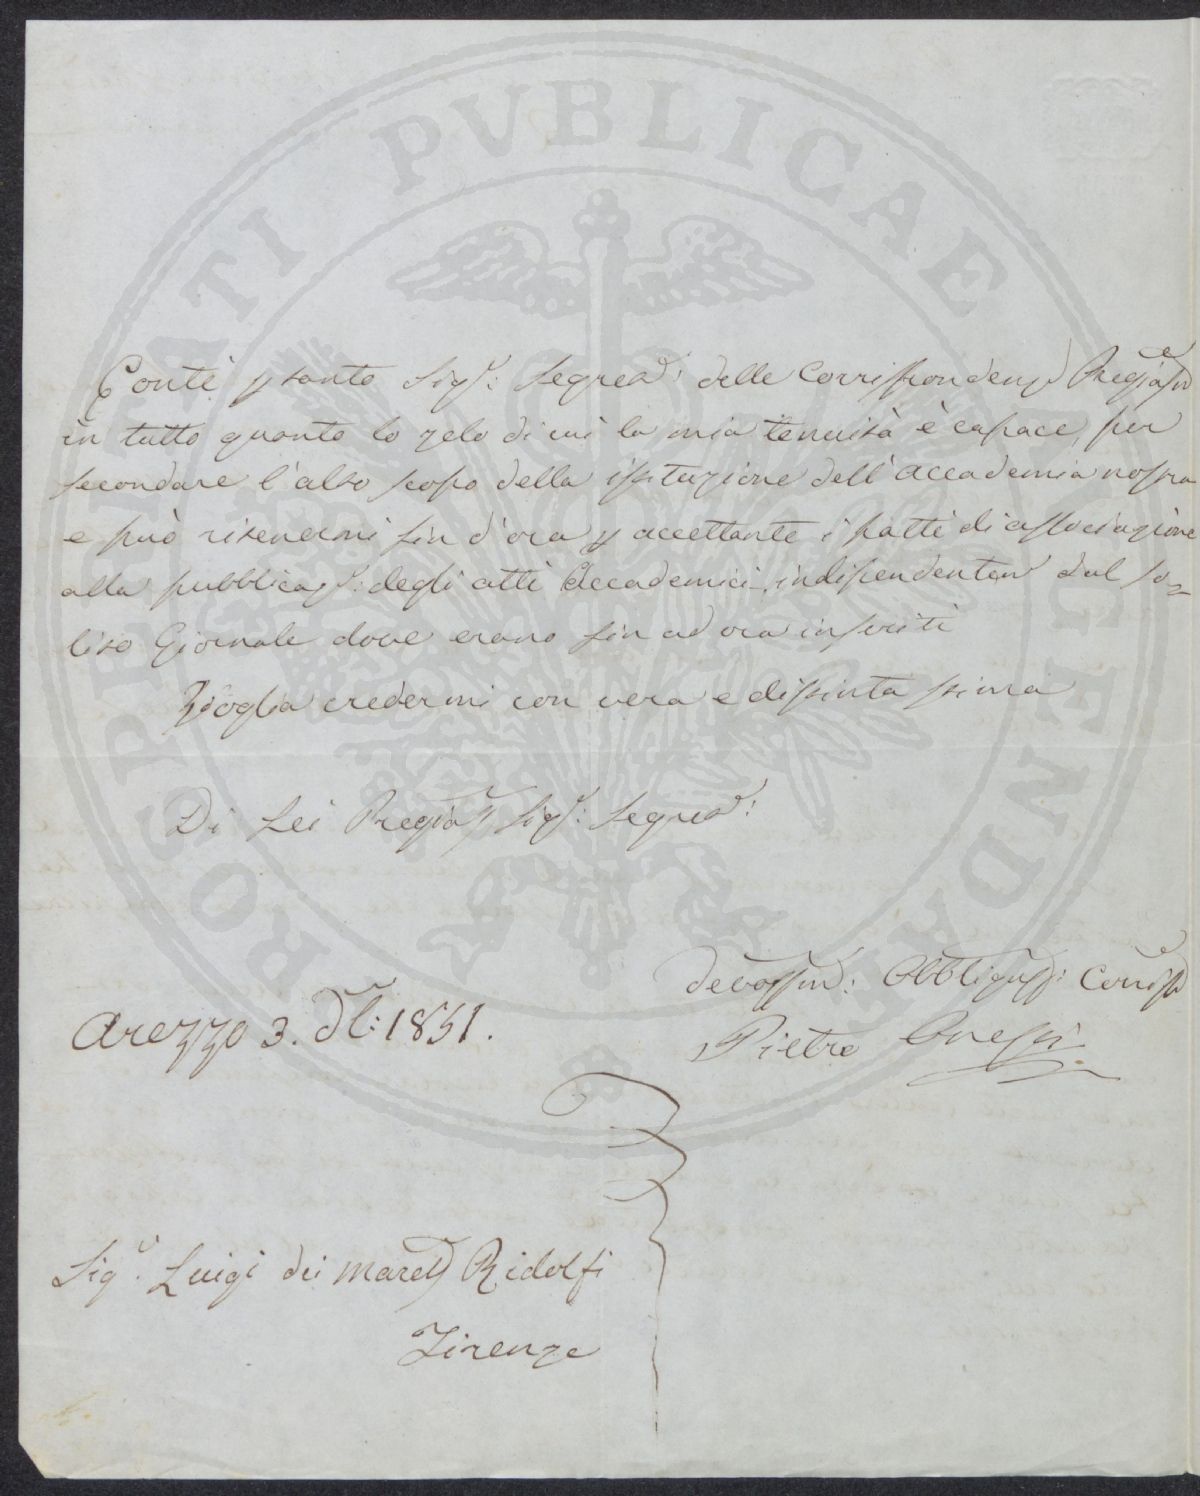 PROSPERITATI PVBLICAE AVGENDAE
Conti ptanto Sigr: Segret: delle Corrispondenze
in tutto quanto lo zelo di cui la mia tenuità è capace, per
secondare l'alto scopo della istituzione dell'Accademia nostra
e può ritenermi fin d'ora p accettante i patti di associazione
alla pubblicaz: degli atti Accademici, indipendentem dal so-
lito Giornale dove erano fin ad ora inseriti
Voglia credermi con vera e distinta stima
Di Lei Sigr: Segret:
Arezzo 3. 1851.
Devotissm: Obbligatss: Corrisp
Pietro
Sigr. Luigi dei March Ridolfi
Firenze